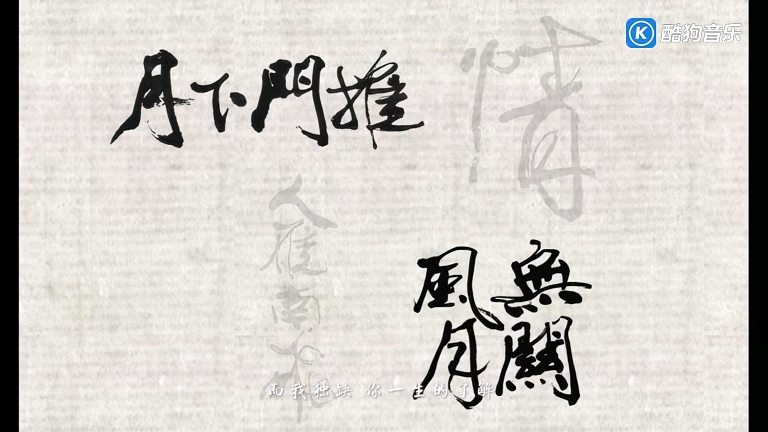 酷狗音乐
情
月下門推
人雁南飛
無關
風月
而我独缺 你一生的了解